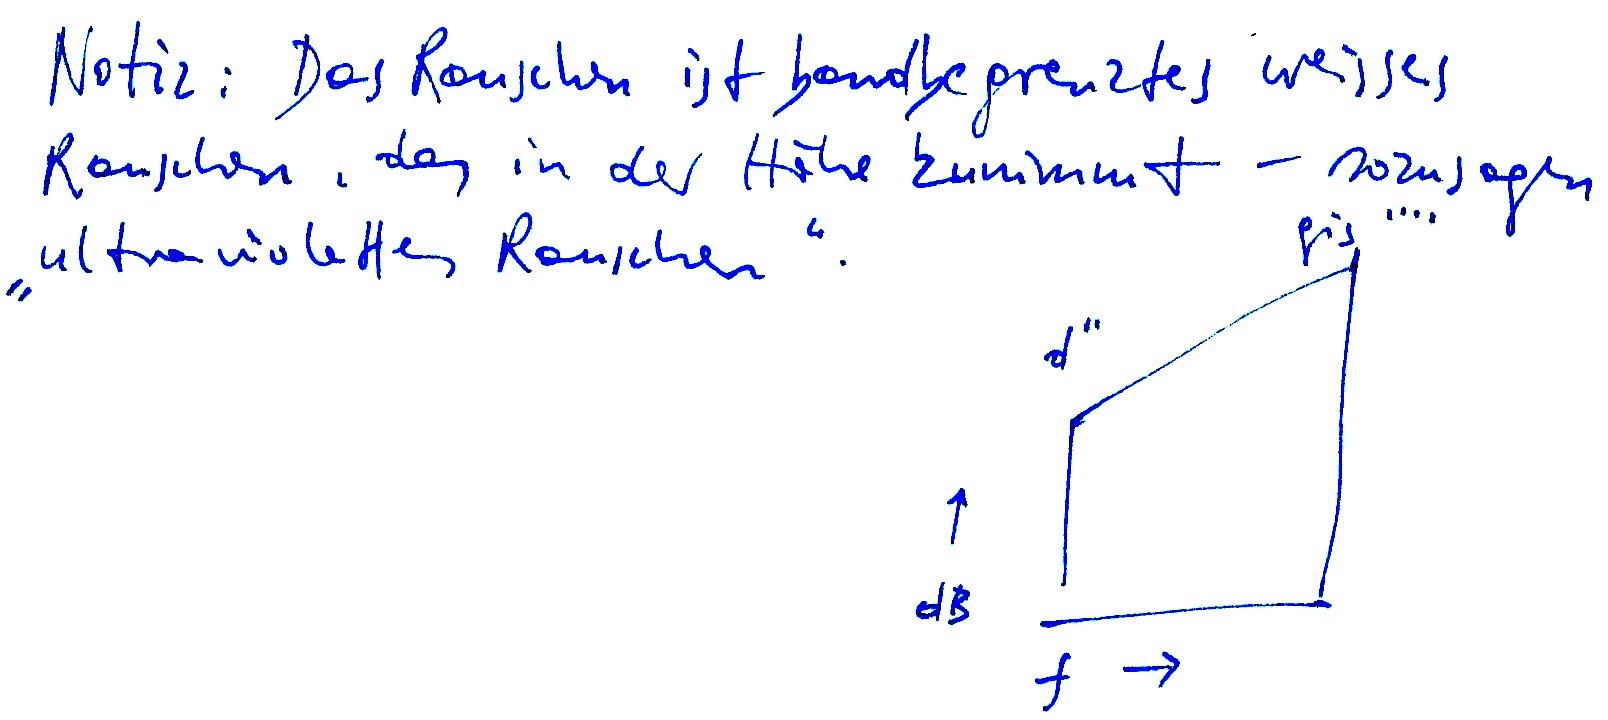 Notiz: Das Rauschen ist bandbegrenztes weisses
Rauschen, das in der Höhe zunimmt – sozusagen
„ultraviolettes Rauschen“.
gis''''
d''
↑
dB
f →